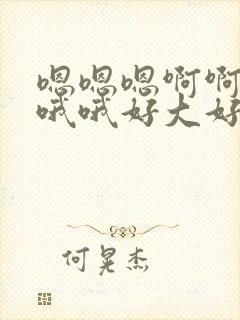 嗯嗯嗯啊啊
哦哦好大好
何晃杰